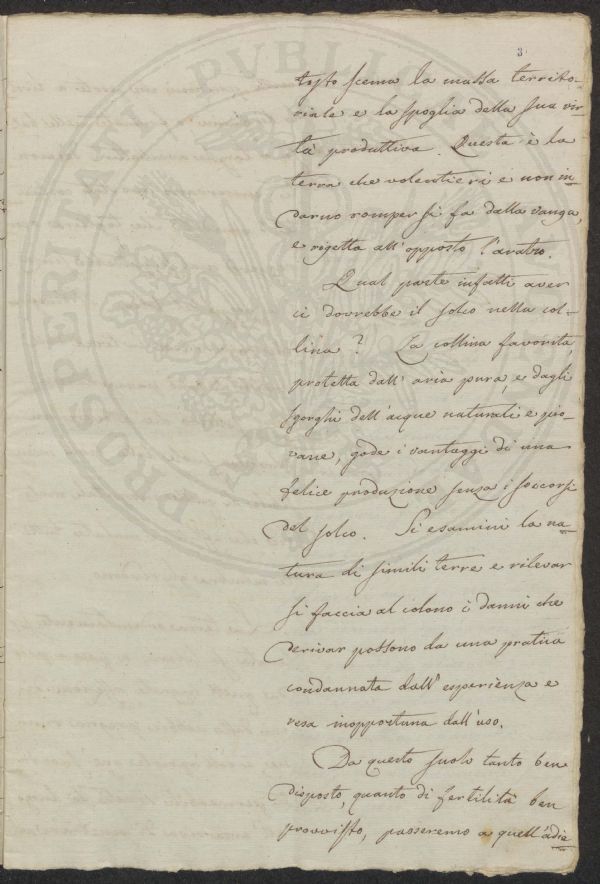 3
tosto scema la massa territo-
riale e la spoglia della sua vir-
tù produttiva. Questa è la
terra che volentieri e non in-
darno romper si fa dalla vanga,
e rigetta all'opposto l'aratro.
Qual parte infatti aver
ci dovrebbe il solco nella col-
lina? La collina favorita,
protetta dall'aria pura, e dagli
sgorghi dell'acque naturali e pio-
vane, gode i vantaggi di una
felice produzione senza i soccorsi
del solco. Si esamini la na-
tura di simili terre e rilevar
si faccia al colono i danni che
derivar possono da una pratica
condannata dall'esperienza e
resa inopportuna dall'uso.
Da questo suolo tanto ben
disposto, quanto di fertilità ben
provvisto, passeremo a quell'adia
PROSPERITATI PVBLICAE